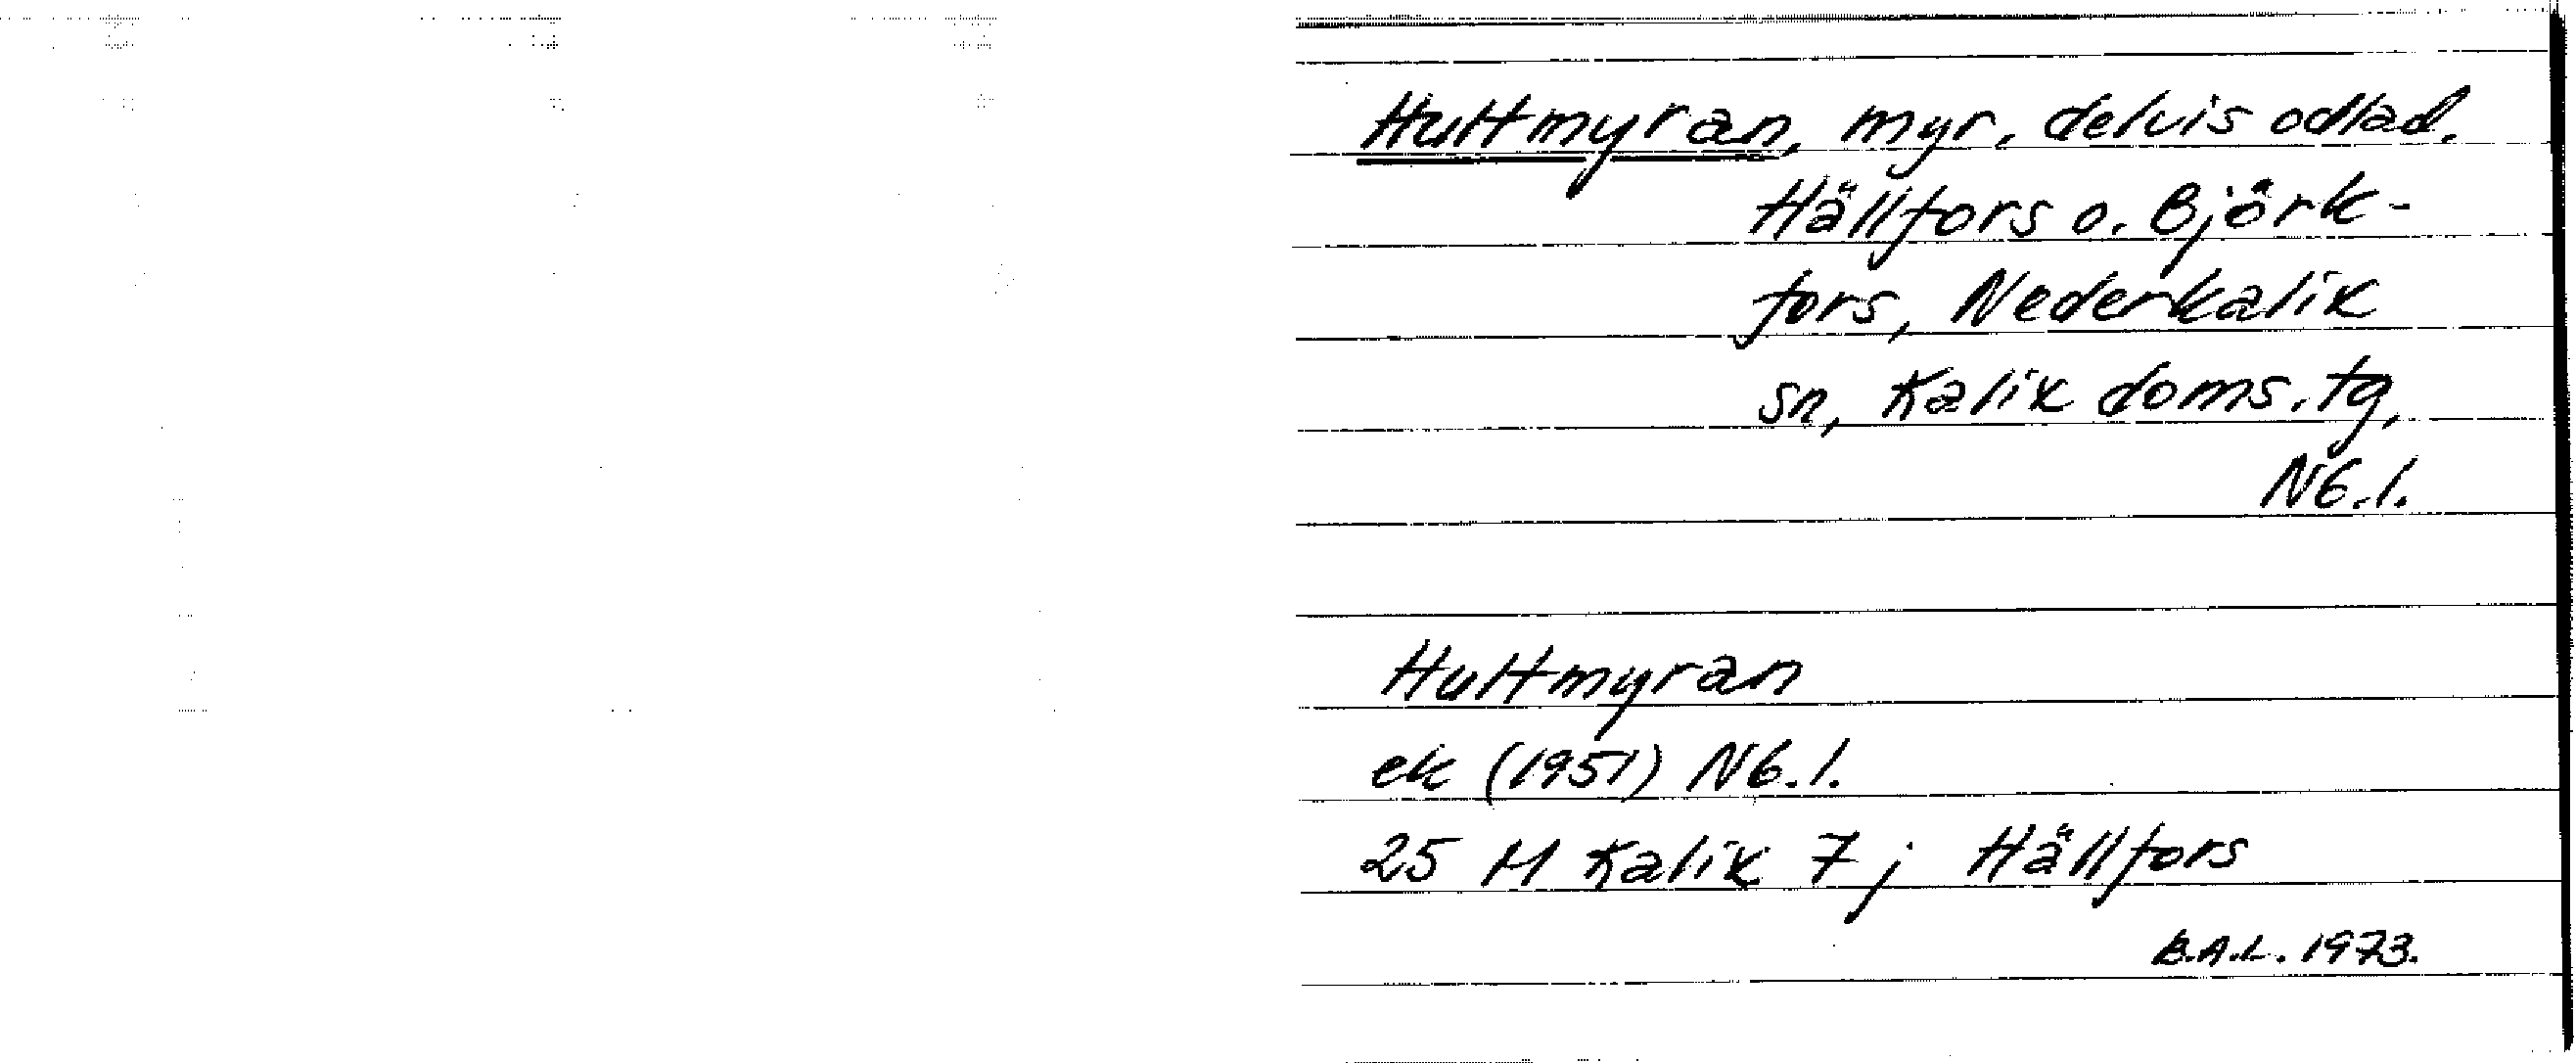 Hultmyran, myr, delvis odlad.
Hällfors o. Björk-
fors, Nederkalix
sn, Kalix doms.tg,
Nb.l.
Hultmyran
ek (1951) Nb.l.
25 M Kalix 7 j Hällfors
B.A.L. 1973.